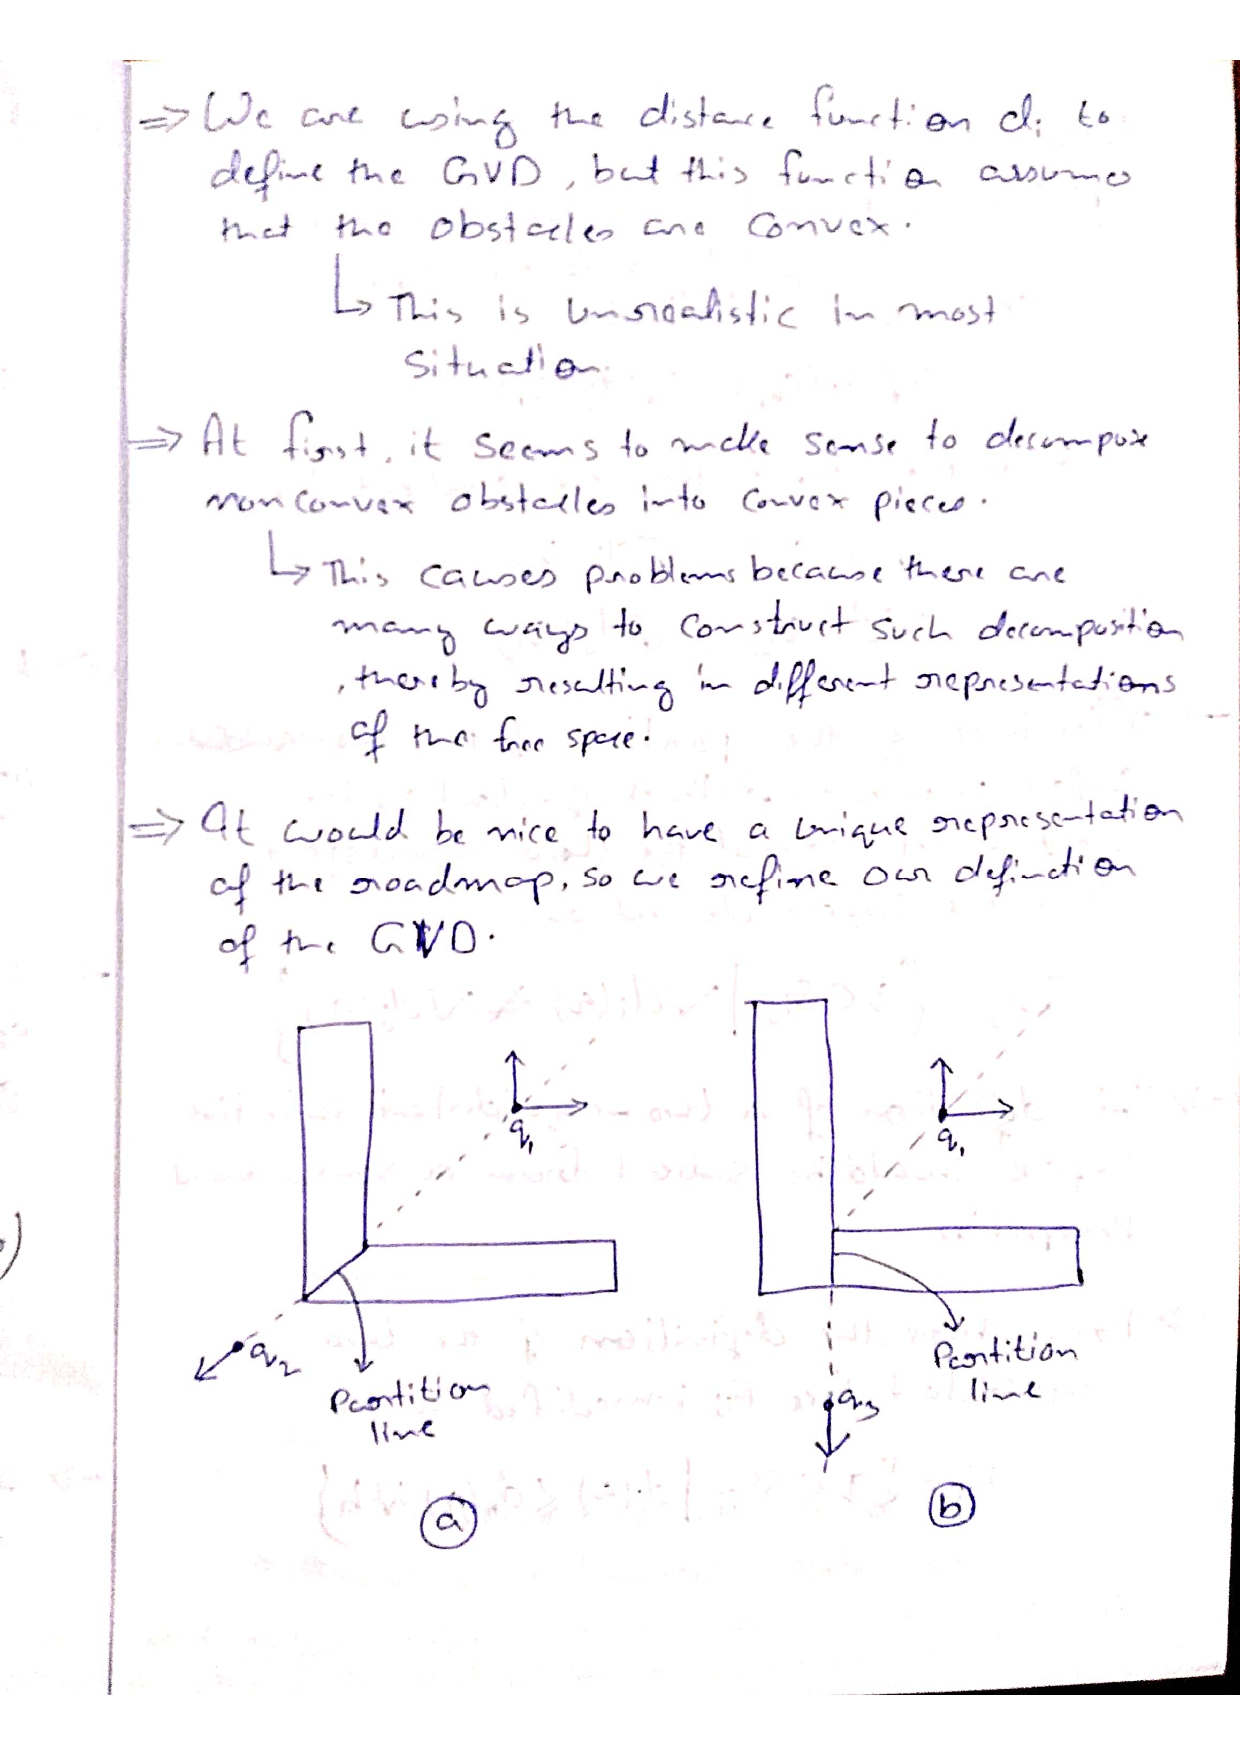 ⇒ We are using the distance function di to
define the GVD, but this function assumes
that the obstacles are convex.
↳ This is unrealistic in most
situation.
⇒ At first, it seems to make sense to decompose
nonconvex obstacles into convex pieces.
↳ This causes problems because there are
many ways to construct such decomposition
, thereby resulting in different representations
of the free space.
⇒ It would be nice to have a unique representation
of the roadmap, so we refine our definition
of the GVD.
q1
q1
q2
Partition
line
Partition
line
q3
a
b